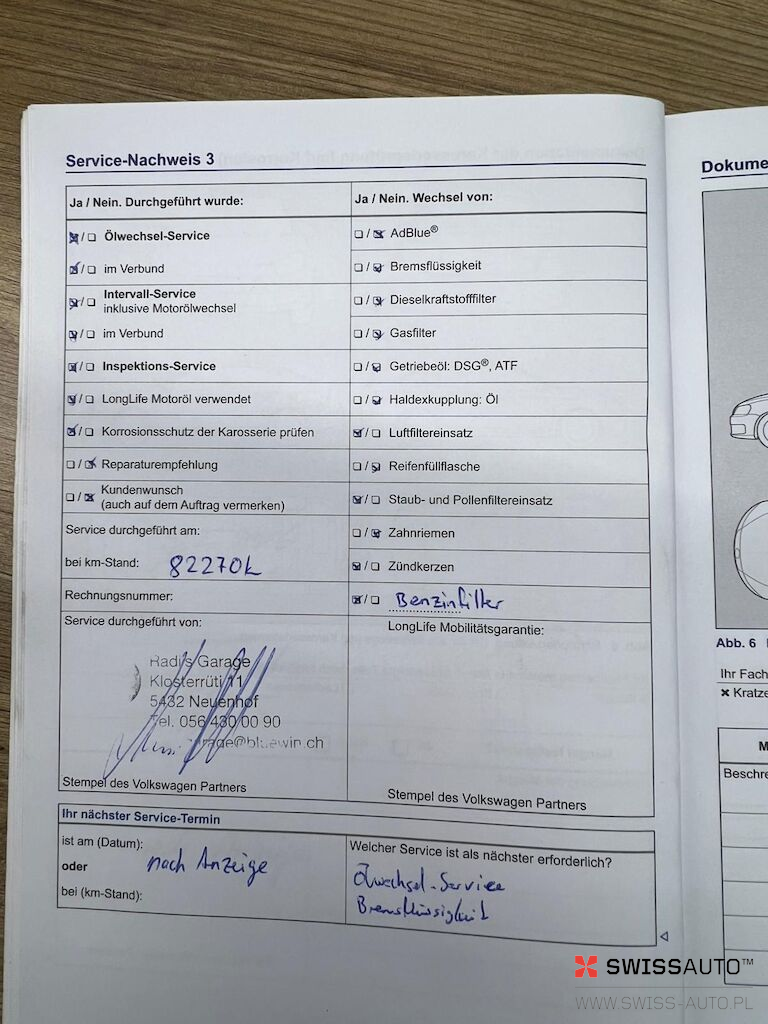 Service-Nachweis 3
Ja / Nein. Durchgeführt wurde:
Ölwechsel-Service
im Verbund
Intervall-Service
inklusive Motorölwechsel
im Verbund
Inspektions-Service
LongLife Motoröl verwendet
Korrosionsschutz der Karosserie prüfen
Reparaturempfehlung
Kundenwunsch
(auch auf dem Auftrag vermerken)
Service durchgeführt am:
bei km-Stand: 82270k
Rechnungsnummer:
Service durchgeführt von:
Radi's Garage
Klosterrüti 11
5432 Neuenhof
Tel. 056 430 00 90
garage@bluewin.ch
Stempel des Volkswagen Partners
Ja / Nein. Wechsel von:
AdBlue®
Bremsflüssigkeit
Dieselkraftstofffilter
Gasfilter
Getriebeöl: DSG®, ATF
Haldexkupplung: Öl
Luftfiltereinsatz
Reifenfüllflasche
Staub- und Pollenfiltereinsatz
Zahnriemen
Zündkerzen
Benzinfilter
LongLife Mobilitätsgarantie:
Stempel des Volkswagen Partners
Ihr nächster Service-Termin
ist am (Datum):
nach Anzeige
oder
bei (km-Stand):
Welcher Service ist als nächster erforderlich?
Ölwechsel-Service
Bremsflüssigkeit
Dokume
Abb. 6
Ihr Fach
× Kratze
M
Beschre
SWISSAUTO™
WWW.SWISS-AUTO.PL